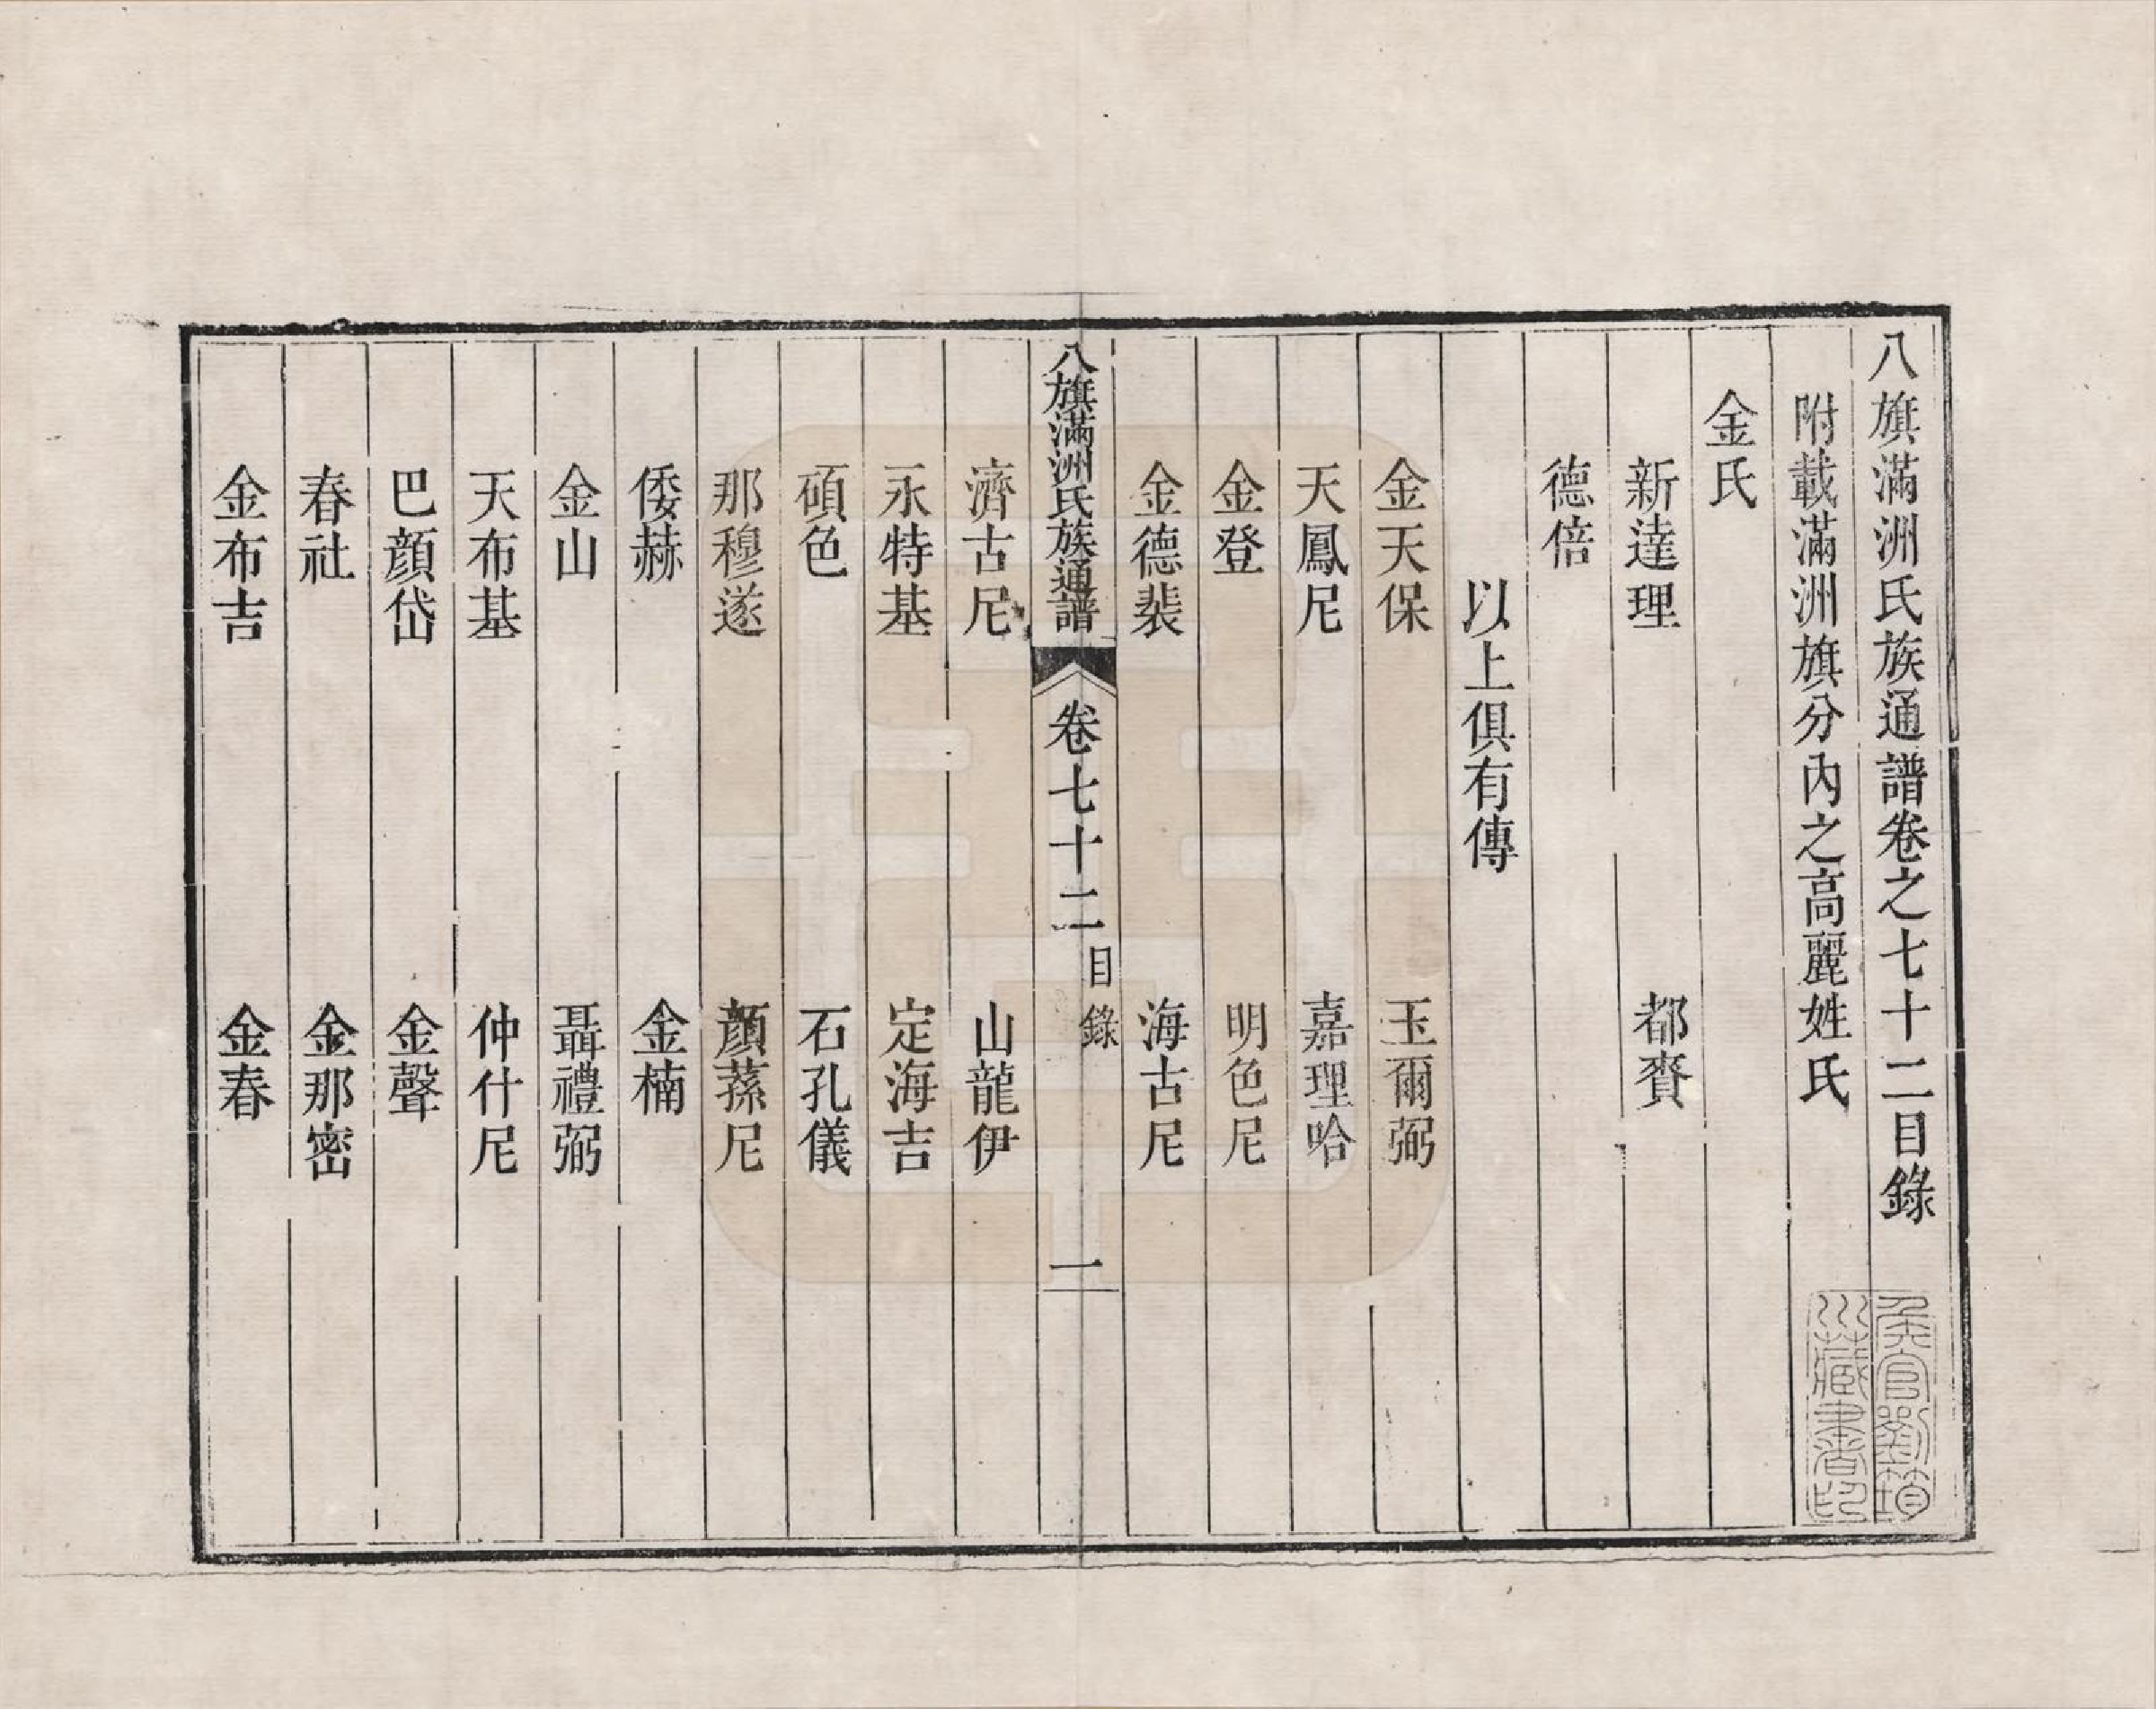 八旗滿洲氏族通譜卷之七十二目錄
附載滿洲旗分內之高麗姓氏
金氏
新達理　都賚
德倍
以上俱有傳
金天保　玉爾弼
天鳳尼　嘉理哈
金登　明色尼
金德裴　海古尼
八旗滿洲氏族通譜　卷七十二　目錄　一
濟古尼　山龍伊
永特基　定海吉
碩色　石孔儀
那穆遂　顏蓀尼
倭赫　金楠
金山　聶禮弼
天布基　仲什尼
巴顏岱　金聲
春社　金那密
金布吉　金春
侯官劉筠
川藏書畫印